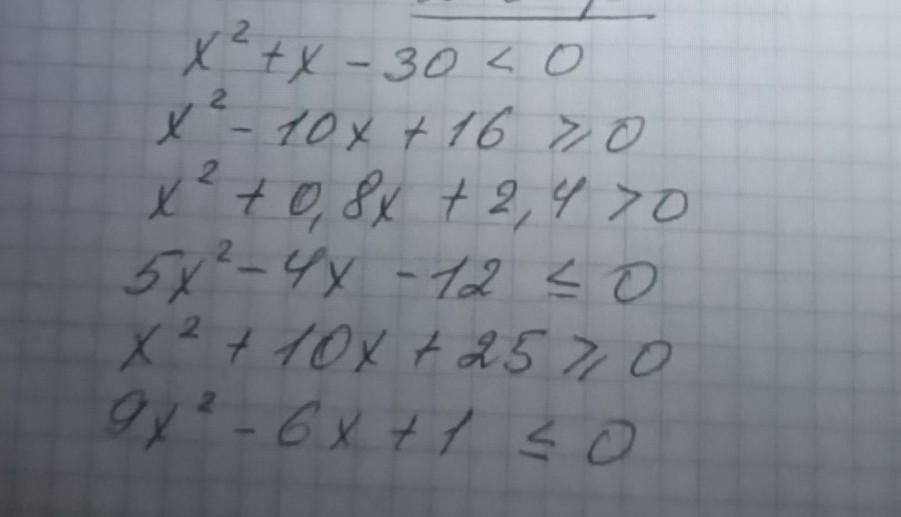 x² + x - 30 < 0
x² - 10x + 16 ⩾ 0
x² + 0,8x + 2,4 > 0
5x² - 4x - 12 ≤ 0
x² + 10x + 25 ⩾ 0
9x² - 6x + 1 ≤ 0